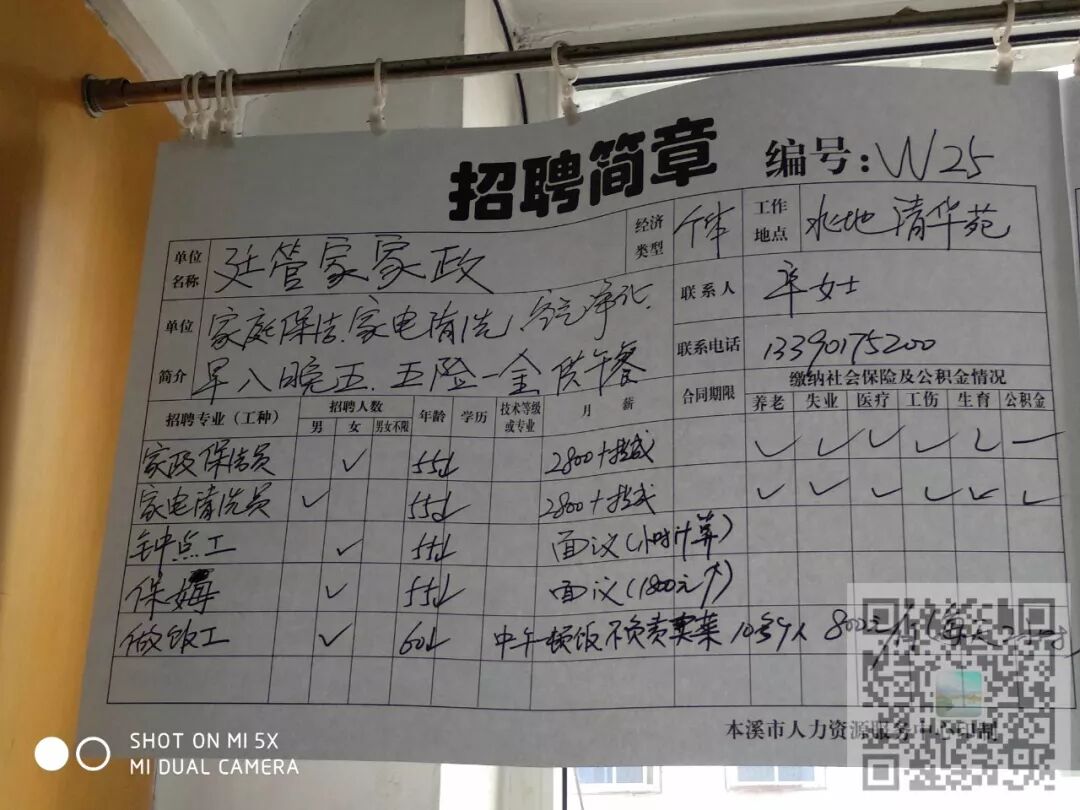 招聘简章 编号：W25
单位名称 廷管家家政 经济类型 个体 工作地点 水地 清华苑
单位简介 家庭保洁.家电清洗,空气净化.
早八晚五.五险一金 供午餐
联系人 单女士
联系电话 13390175200
招聘专业（工种） 招聘人数 男 女 男女不限 年龄 学历 技术等级或专业 月薪 合同期限 缴纳社会保险及公积金情况 养老 失业 医疗 工伤 生育 公积金
家政保洁员 ✓ 55以 2800+提成 ✓ ✓ ✓ ✓ ✓ —
家电清洗员 ✓ 55以 2800+提成 ✓ ✓ ✓ ✓ ✓ ✓
钟点工 ✓ 55以 面议(小时计算)
保姆 ✓ 55以 面议(1800元↑)
做饭工 ✓ 60以 中午一顿饭不负责买菜 10多个人 800元
本溪市人力资源服务中心印制
SHOT ON MI 5X
MI DUAL CAMERA